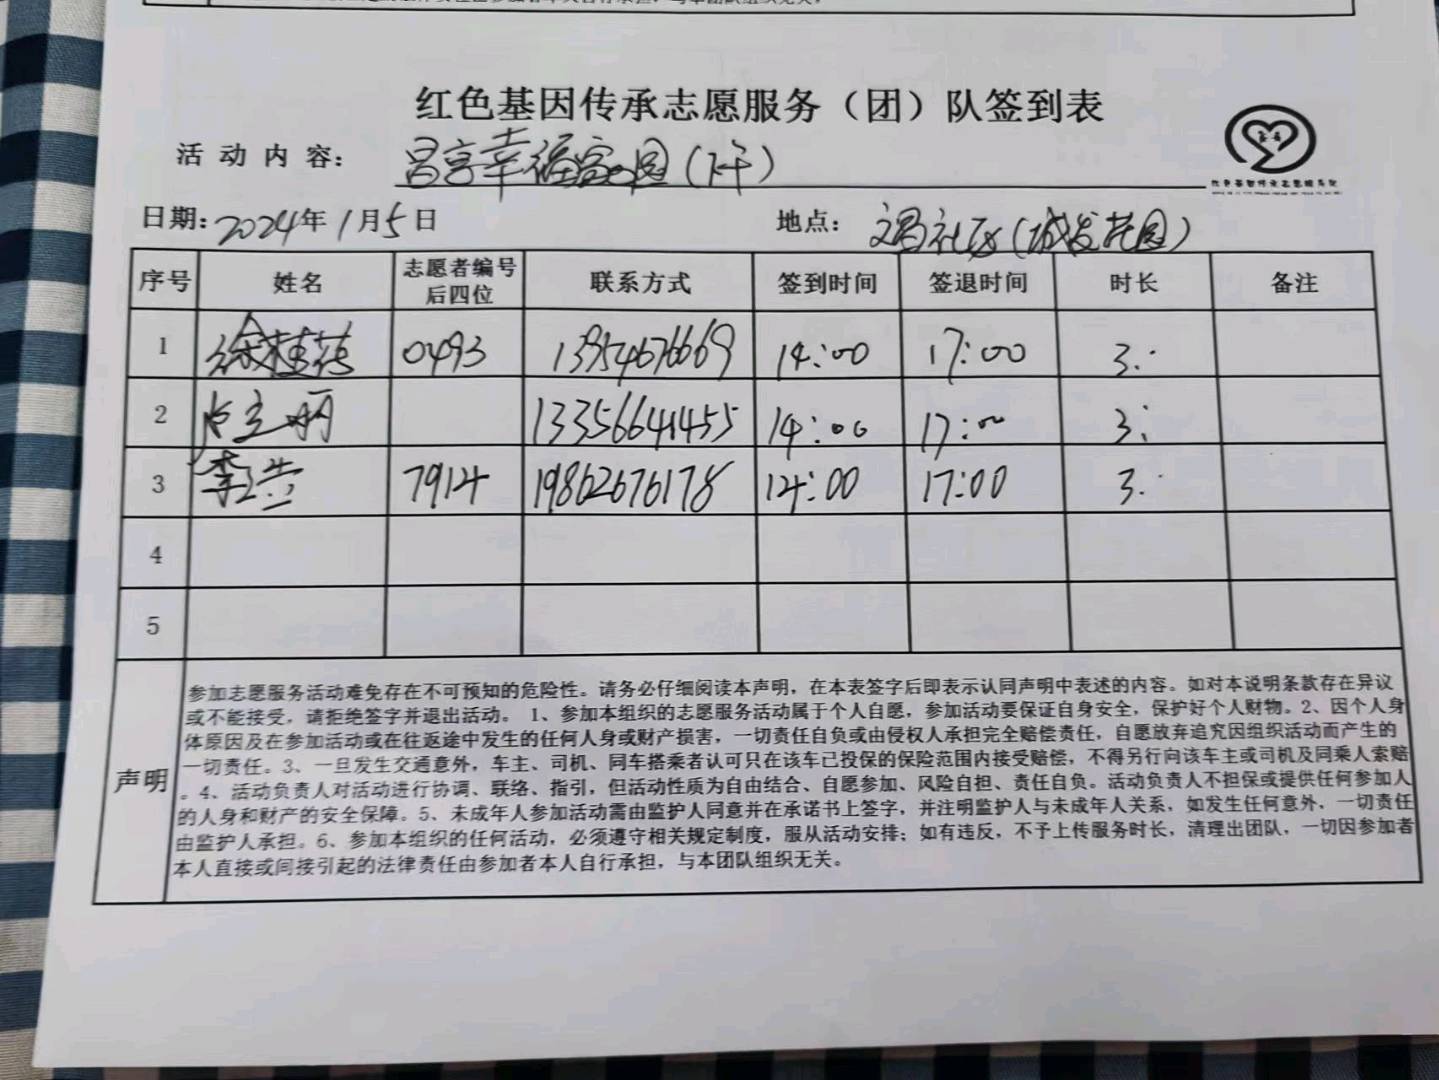 红色基因传承志愿服务（团）队签到表
活动内容： 昌言幸福家园（下午）
日期：2024年1月5日 地点：文昌社区（城发花园）
序号 姓名 志愿者编号后四位 联系方式 签到时间 签退时间 时长 备注
1 徐桂花 0493 13954676669 14:00 17:00 3.
2 13356641455 14:00 17:00 3.
3 7914 19862676178 14:00 17:00 3.
4
5
声明
参加志愿服务活动难免存在不可预知的危险性。请务必仔细阅读本声明，在本表签字后即表示认同声明中表述的内容。如对本说明条款存在异议
或不能接受，请拒绝签字并退出活动。 1、参加本组织的志愿服务活动属于个人自愿，参加活动要保证自身安全，保护好个人财物。2、因个人身
体原因及在参加活动或在往返途中发生的任何人身或财产损害，一切责任自负或由侵权人承担完全赔偿责任，自愿放弃追究因组织活动而产生的
一切责任。3、一旦发生交通意外，车主、司机、同车搭乘者认可只在该车已投保的保险范围内接受赔偿，不得另行向该车主或司机及同乘人索赔
。4、活动负责人对活动进行协调、联络、指引，但活动性质为自由结合、自愿参加、风险自担、责任自负。活动负责人不担保或提供任何参加人
的人身和财产的安全保障。5、未成年人参加活动需由监护人同意并在承诺书上签字，并注明监护人与未成年人关系，如发生任何意外，一切责任
由监护人承担。6、参加本组织的任何活动，必须遵守相关规定制度，服从活动安排；如有违反，不予上传服务时长，清理出团队，一切因参加者
本人直接或间接引起的法律责任由参加者本人自行承担，与本团队组织无关。